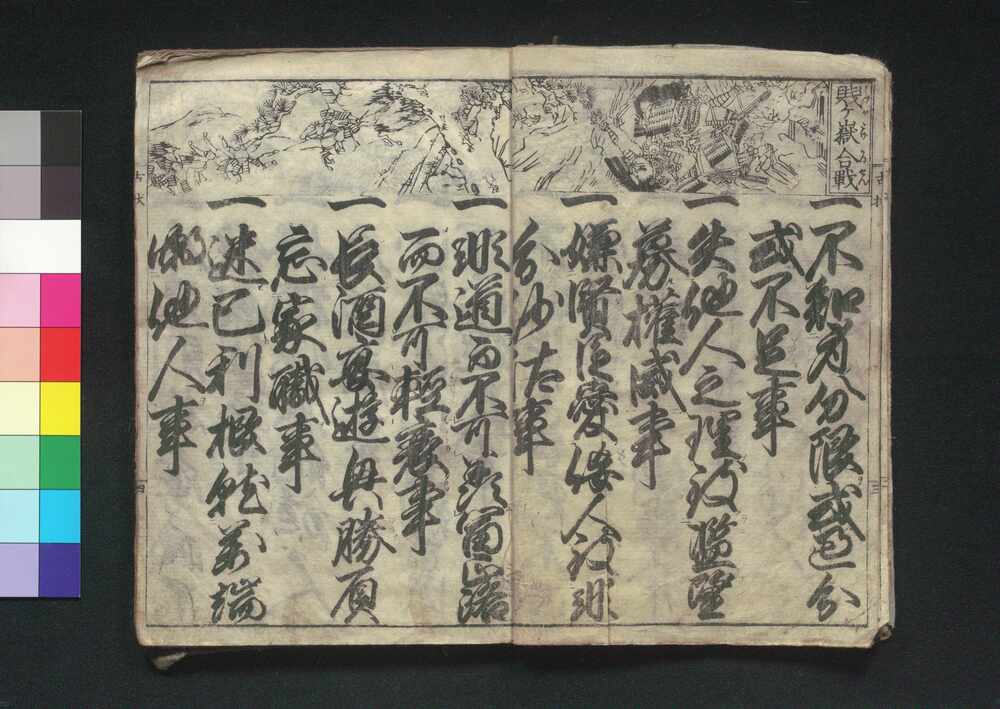 賤ヶ嶽合戦
一不知身分限或過分
或不足事
一失他人之理致
募權威事
一嫌賢臣愛侫人致非
分沙汰事
一非道而不可羨富正路
而不可輕衰事
一長酒宴遊興勝負
忘家職事
一迷己利根就万端
嘲他人事